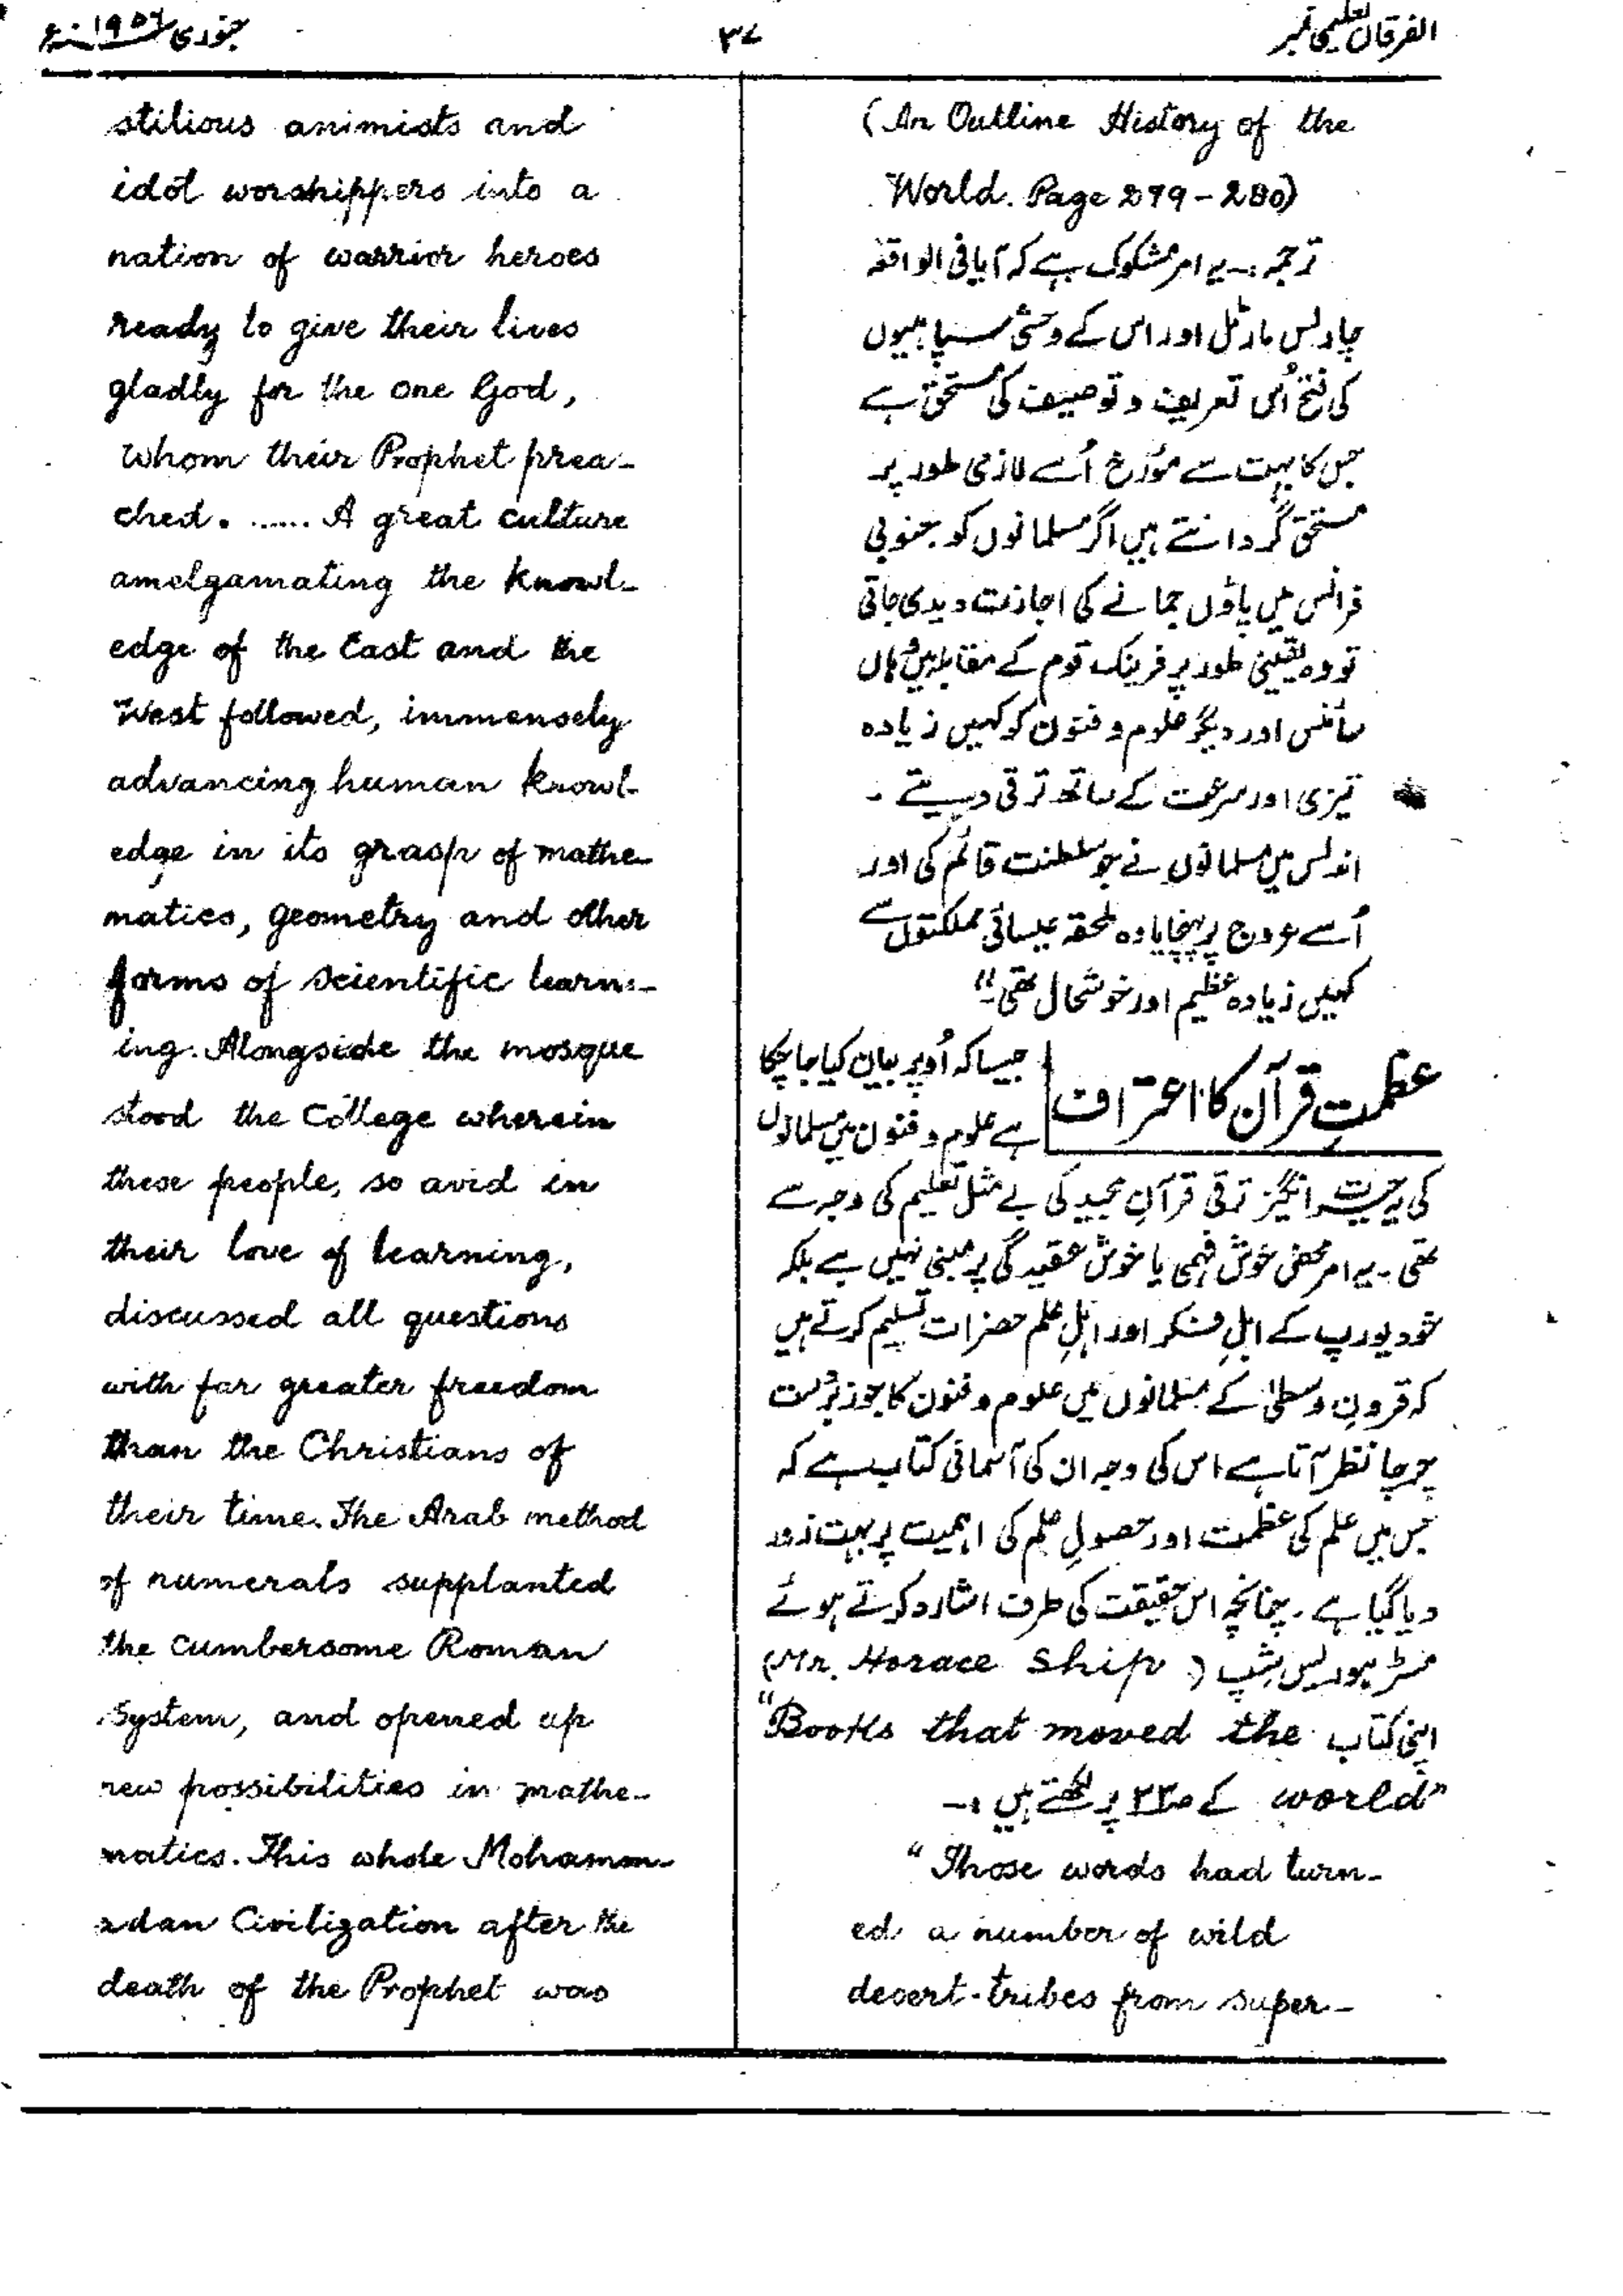 الفرقان تعلیمی نمبر
۳۷
جنوری ۱۹۵۶ء
(An Outline History of the
World. Page 279-280)
ترجمہ:۔ یہ امر مشکوک ہے کہ آیا فی الواقعہ
چارلس مارٹل اور اس کے وحشی سپاہیوں
کی فتح اُس تعریف و توصیف کی مستحق ہے
جس کا بہت سے مؤرخ اُسے لازمی طور پر
مستحق گردانتے ہیں اگر مسلمانوں کو جنوبی
فرانس میں پاؤں جمانے کی اجازت دیدی جاتی
تو وہ یقینی طور پر فرینک قوم کے مقابلہ میں وہاں
سائنس اور دیگر علوم و فنون کو کہیں زیادہ
تیزی اور سرعت کے ساتھ ترقی دیتے ۔
اندلس میں مسلمانوں نے جو سلطنت قائم کی اور
اُسے عروج پر پہنچایا وہ ملحقہ عیسائی مملکتوں سے
کہیں زیادہ عظیم اور خوشحال تھی۔"
عظمتِ قرآن کا اعتراف
جیسا کہ اُوپر بیان کیا جا چکا
ہے علوم و فنون میں مسلمانوں
کی یہ حیرت انگیز ترقی قرآن مجید کی بے مثل تعلیم کی وجہ سے
تھی ۔ یہ امر محض خوش فہمی یا خوش عقیدگی پر مبنی نہیں ہے بلکہ
خود یورپ کے اہلِ فکر اور اہلِ علم حضرات تسلیم کرتے ہیں
کہ قرونِ وسطیٰ کے مسلمانوں میں علوم و فنون کا جو زبردست
چرچا نظر آتا ہے اس کی وجہ ان کی آسمانی کتاب ہے کہ
جس میں علم کی عظمت اور حصولِ علم کی اہمیت پر بہت زور
دیا گیا ہے ۔ چنانچہ اس حقیقت کی طرف اشارہ کرتے ہوئے
مسٹر ہوریس شپ (Mr. Horace Ship)
اپنی کتاب "Books that moved the
world" کے صـ۲۳ پر لکھتے ہیں :۔
"Those words had turn-
ed a number of wild
desert-tribes from super-
stilious animists and
idol worshippers into a
nation of warrior heroes
ready to give their lives
gladly for the one God,
whom their Prophet prea-
ched. ...... A great culture
amelgamating the knowl-
edge of the East and the
West followed, immensely
advancing human knowl-
edge in its grasp of mathe-
matics, geometry and other
forms of scientific learn-
ing. Alongside the mosque
stood the College wherein
these people, so avid in
their love of learning,
discussed all questions
with far greater freedom
than the Christians of
their time. The Arab method
of numerals supplanted
the cumbersome Roman
System, and opened up
new possibilities in mathe-
matics. This whole Mohamm-
adan Civilization after the
death of the Prophet was